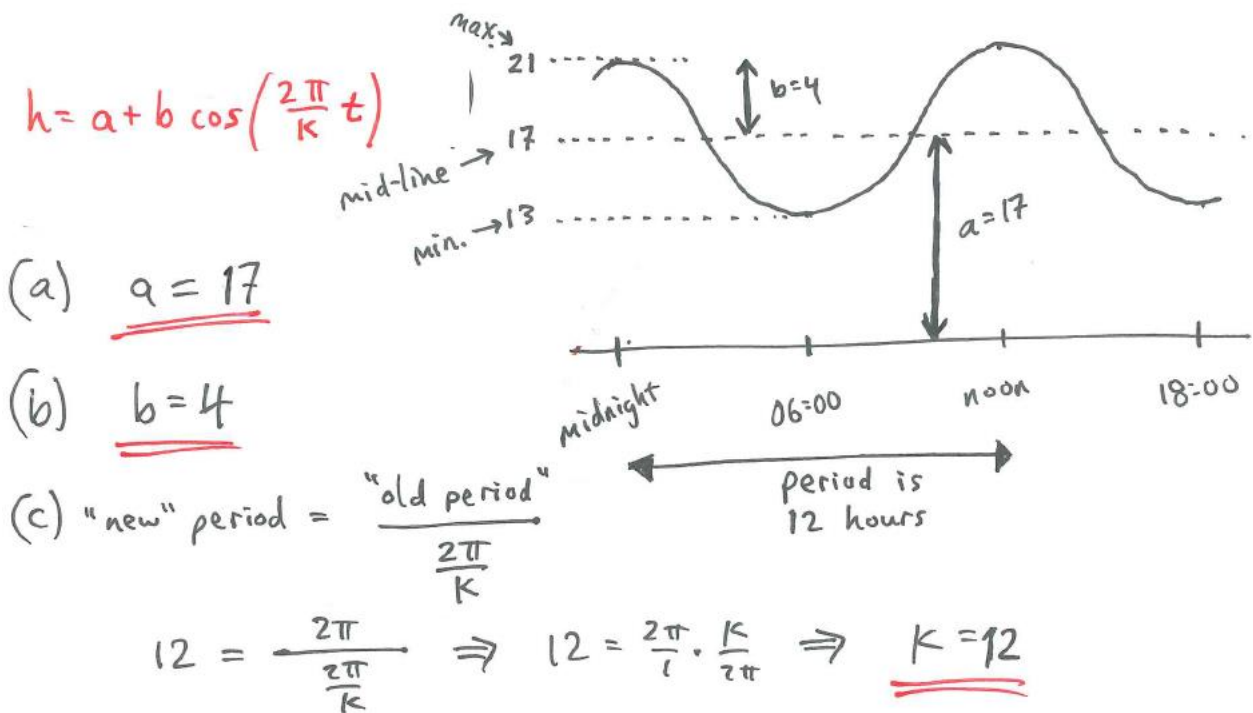 h = a + b cos(2π/K t)
max
21
b=4
17
mid-line
min. 13
a=17
(a) a = 17
midnight 06:00 noon 18:00
(b) b = 4
period is
12 hours
(c) "new" period = "old period" / (2π/K)
12 = 2π / (2π/K) ⇒ 12 = 2π/1 · K/2π ⇒ K = 12